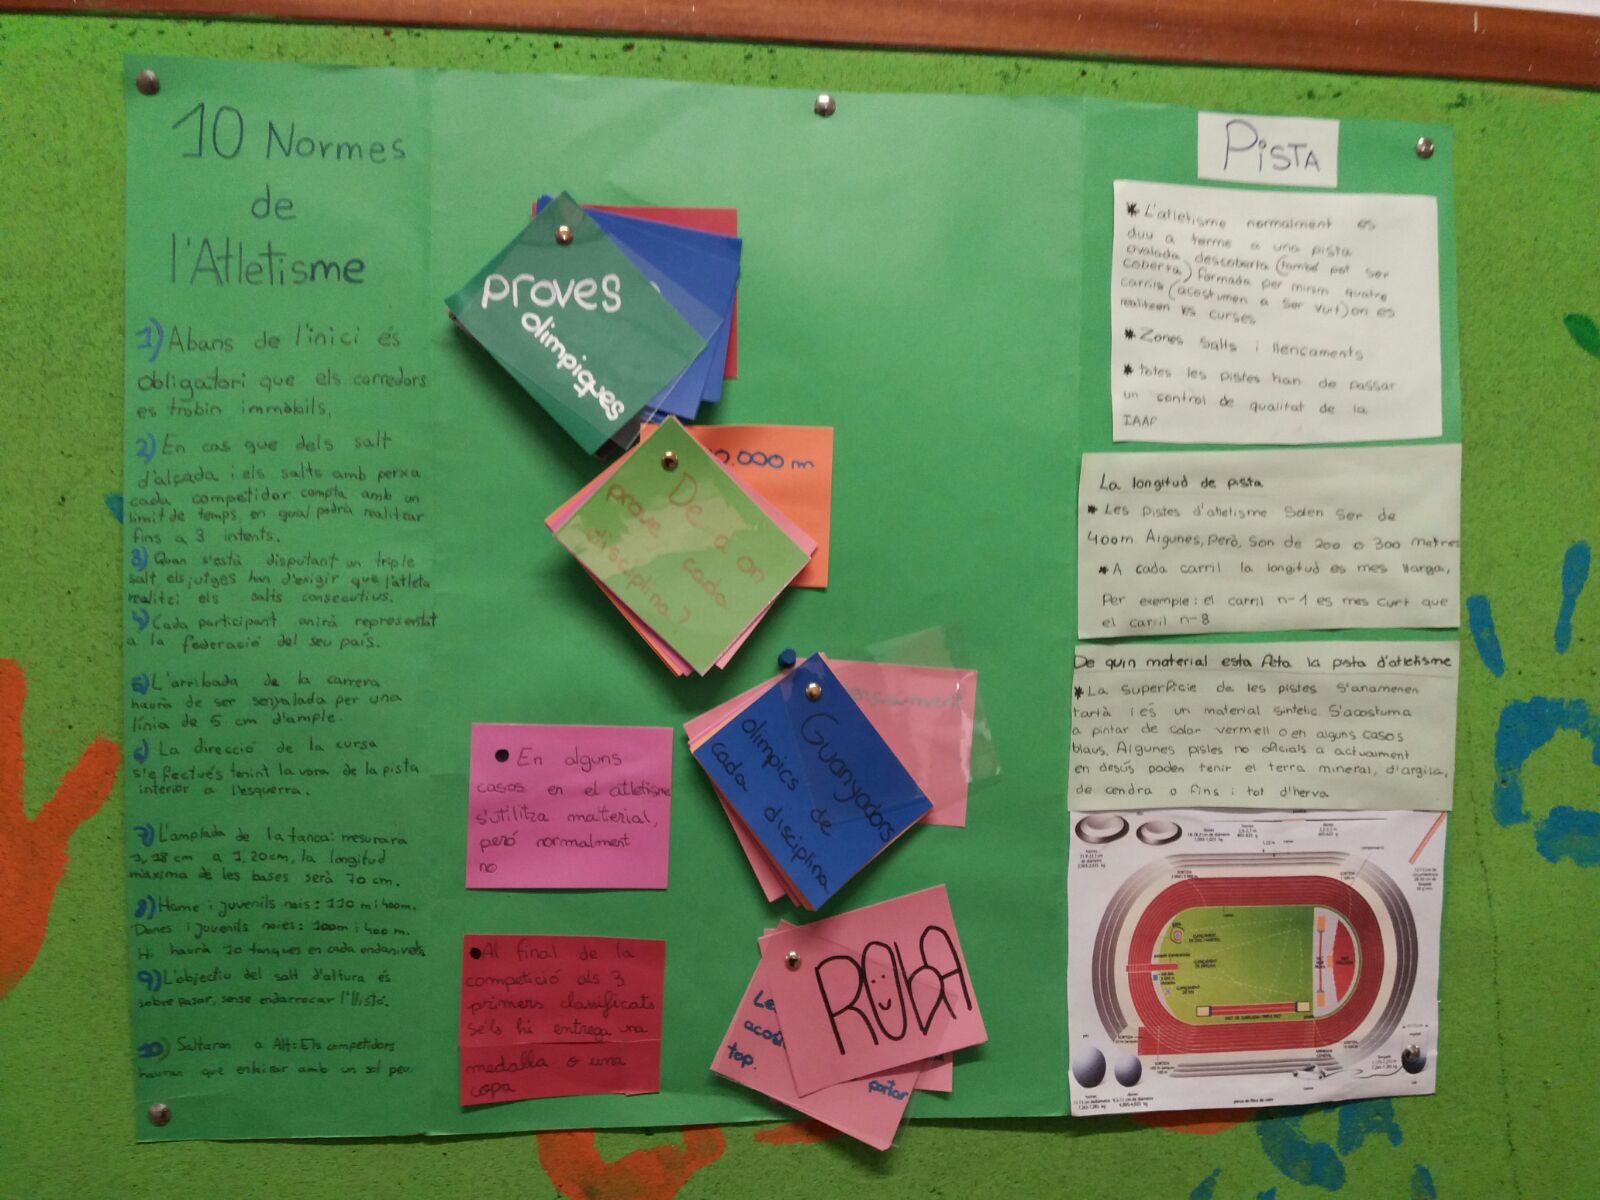 10 Normes
de
l'Atletisme
1) Abans de l'inici és
obligatori que els corredors
es trobin immòbils,
2) En cas que dels salt
d'alçada i els salts amb perxa
cada competidor compta amb un
límit de temps, en qual podrà realitzar
fins a 3 intents.
3) Quan s'està disputant un triple
salt els jutges han d'exigir que l'atleta
realitzi els salts consecutius.
4) Cada participant anirà representat
a la federació del seu país.
5) L'arribada de la carrera
haurà de ser senyalada per una
línia de 5 cm d'ample.
6) La direcció de la cursa
s'efectués tenint la vora de la pista
interior a l'esquerra.
7) L'amplada de la tanca: mesurara
1,18 cm a 1,20cm, la longitud
màxima de les bases serà 70 cm.
8) Home i juvenils nois: 110 m i 400m.
Dones i juvenils noies: 100m i 400 m.
Hi haurà 10 tanques en cada
9) L'objectiu del salt d'altura és
sobre pasar, sense endarrocar l'llistó.
10) Saltaran a Alt: Els competidors
hauran que enlairar amb un sol peu.
proves
olimpiques
0.000 m
De a on
prove cada
disciplina?
Guanyadors
olimpics de
cada disciplina
• En alguns
casos en el atletisme
s'utilitza material,
però normalment
no
• Al final de la
competició als 3
primers classificats
se'ls hi entrega una
medalla o una
copa
ROBA
top.
portar
PiSTA
* L'atletisme normalment es
duu a terme a una pista
ovalada descoberta (també pot ser
coberta) formada per minim quatre
carrils (acostumen a ser vuit) on es
realitzen les curses
* Zones Salts i llençaments
* totes les pistes han de passar
un control de qualitat de la
IAAF
La longitud de pista
* Les Pistes d'atletisme Solen Ser de
400m Algunes, Però, Son de 200 o 300 metres
* A cada carril la longitud es mes llarga,
Per exemple: el carril n-1 es mes curt que
el carril n-8
De quin material esta feta la pista d'atletisme
* La Superfície de les pistes S'anamenen
tartà i és un material sintetic S'acostuma
a pintar de color vermell o en alguns casos
blaus. Algunes pistes no oficials o actualment
en desús poden tenir el terra mineral, d'argila,
de cendra o fins i tot d'herva